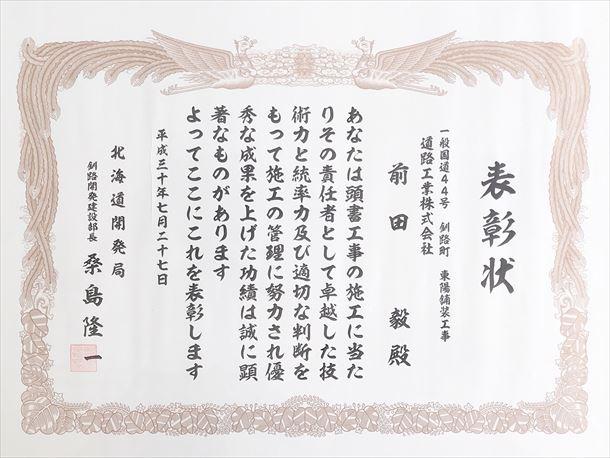 表彰状
一般国道44号 釧路町 東陽舗装工事
道路工業株式会社
前田 毅 殿
あなたは頭書工事の施工に当た
りその責任者として卓越した技
術力と統率力及び適切な判断を
もって施工の管理に努力され優
秀な成果を上げた功績は誠に顕
著なものがあります
よってここにこれを表彰します
平成三十年七月二十七日
北海道開発局
釧路開発建設部長 桑島隆一